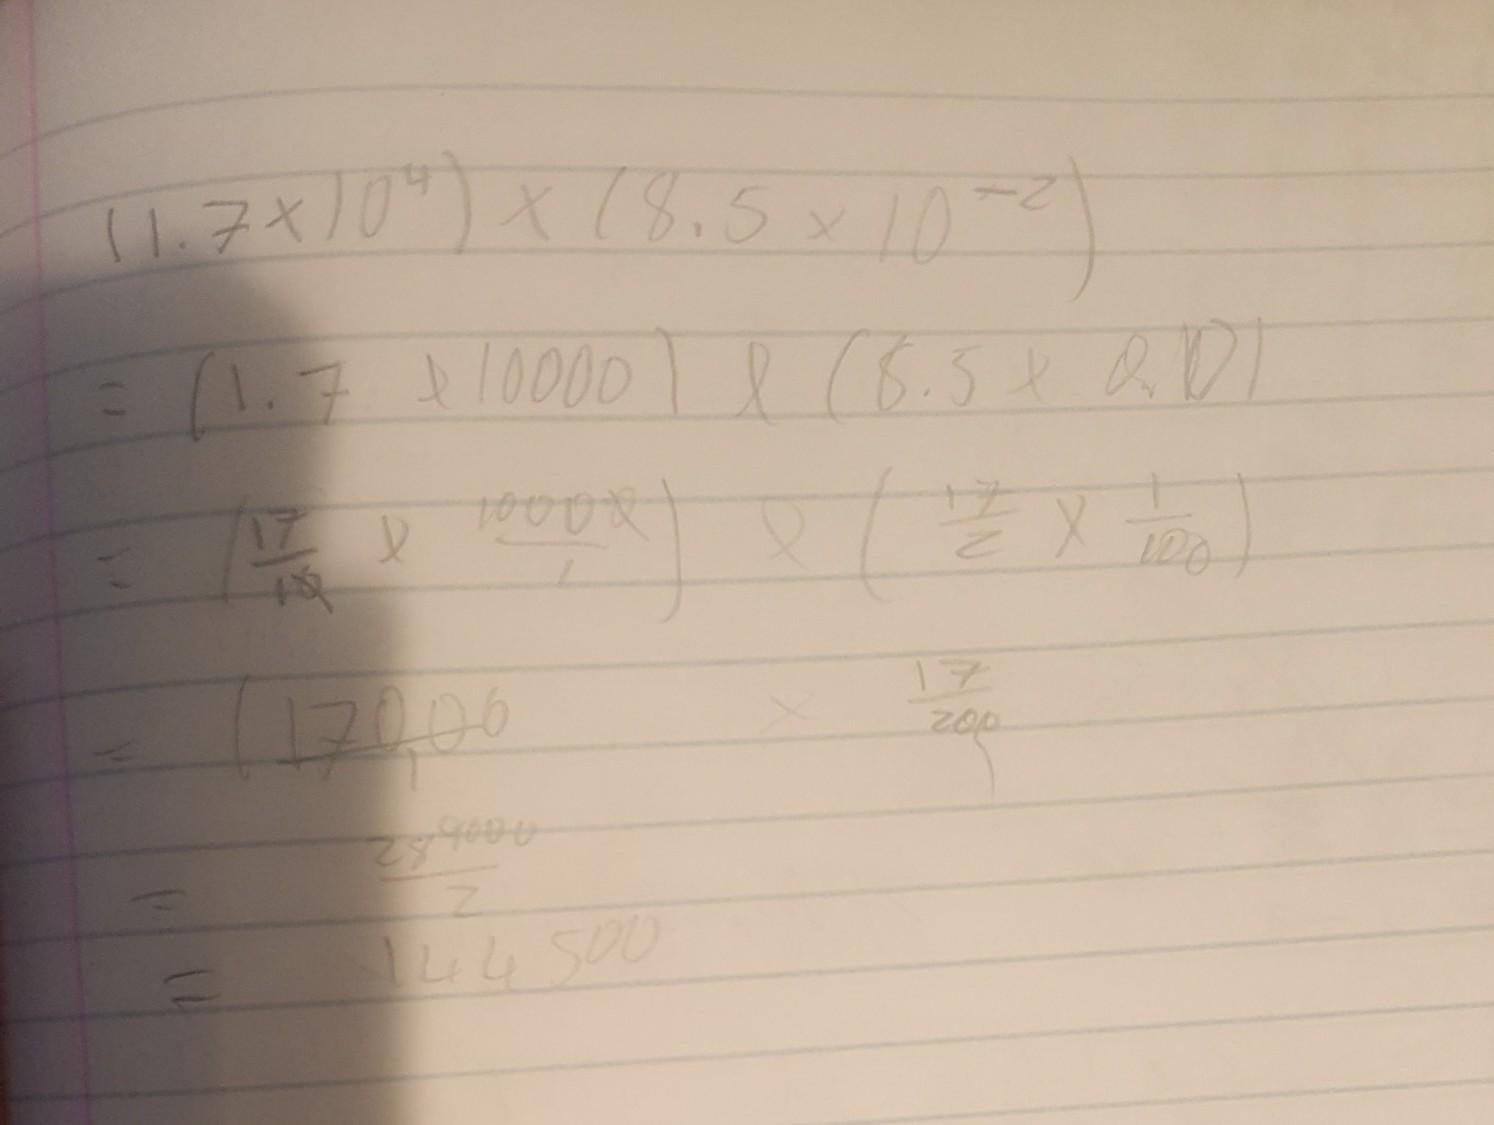 (1.7×10⁴) × (8.5 × 10⁻²)
= (1.7 × 10000) × (8.5 × 0.10)
= (17/10 × 10000/1) × (17/2 × 1/100)
= (17000/1 × 17/200)
= 289000/2
= 144500